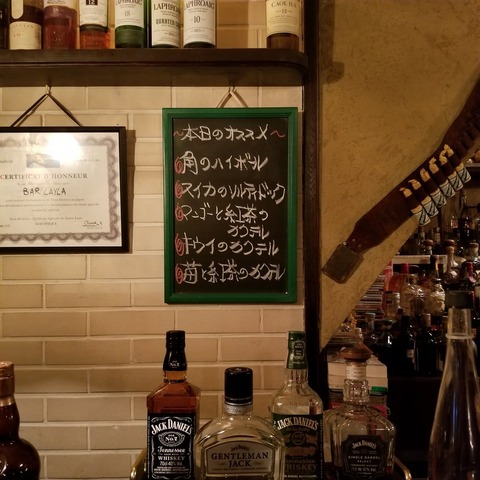 LAPHROAIG
LAPHROAIG
18
QUARTER CASK
10
CAOL ILA
12
CERTIFICAT D'HONNEUR
BAR LAYLA
~本日のオススメ~
角のハイボール
スイカのソルティドック
マンゴーと紅茶の
カクテル
キウイのカクテル
苺と紅茶のカクテル
JACK DANIEL'S
OLD
No.7
BRAND
Tennessee
WHISKEY
70cl 40% vol.
GENTLEMAN
JACK
JACK DANIEL'S
WHISKEY
JACK DANIEL'S
SINGLE BARREL
SELECT